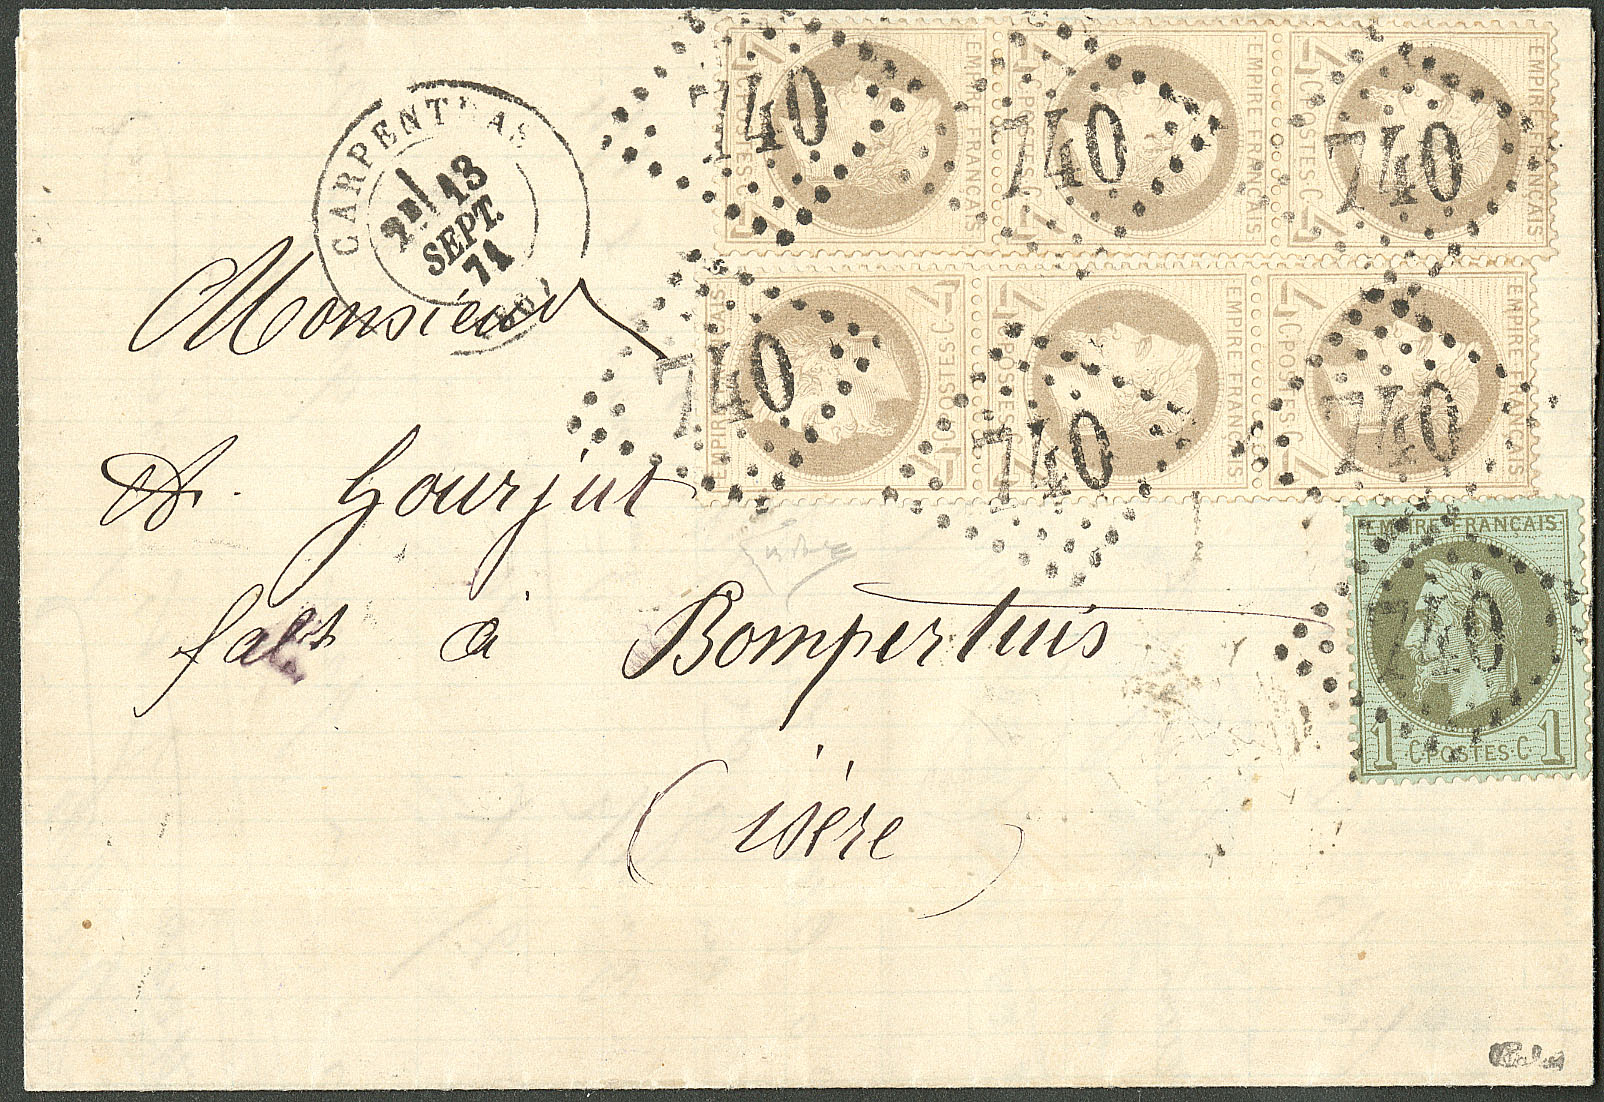 CARPENTRAS
2E/ 13
SEPT.
71
Monsieur
A. Gourjut
fabt à Bompertuis
(isère)
740
740
740
740
740
740
740
EMPIRE FRANÇAIS
4 C. POSTES C. 4
EMPIRE FRANÇAIS
4 C. POSTES C. 4
EMPIRE FRANÇAIS
4 C. POSTES C. 4
EMPIRE FRANÇAIS
4 C. POSTES C. 4
EMPIRE FRANÇAIS
4 C. POSTES C. 4
EMPIRE FRANÇAIS
4 C. POSTES C. 4
EMPIRE FRANÇAIS
1 C. POSTES C. 1